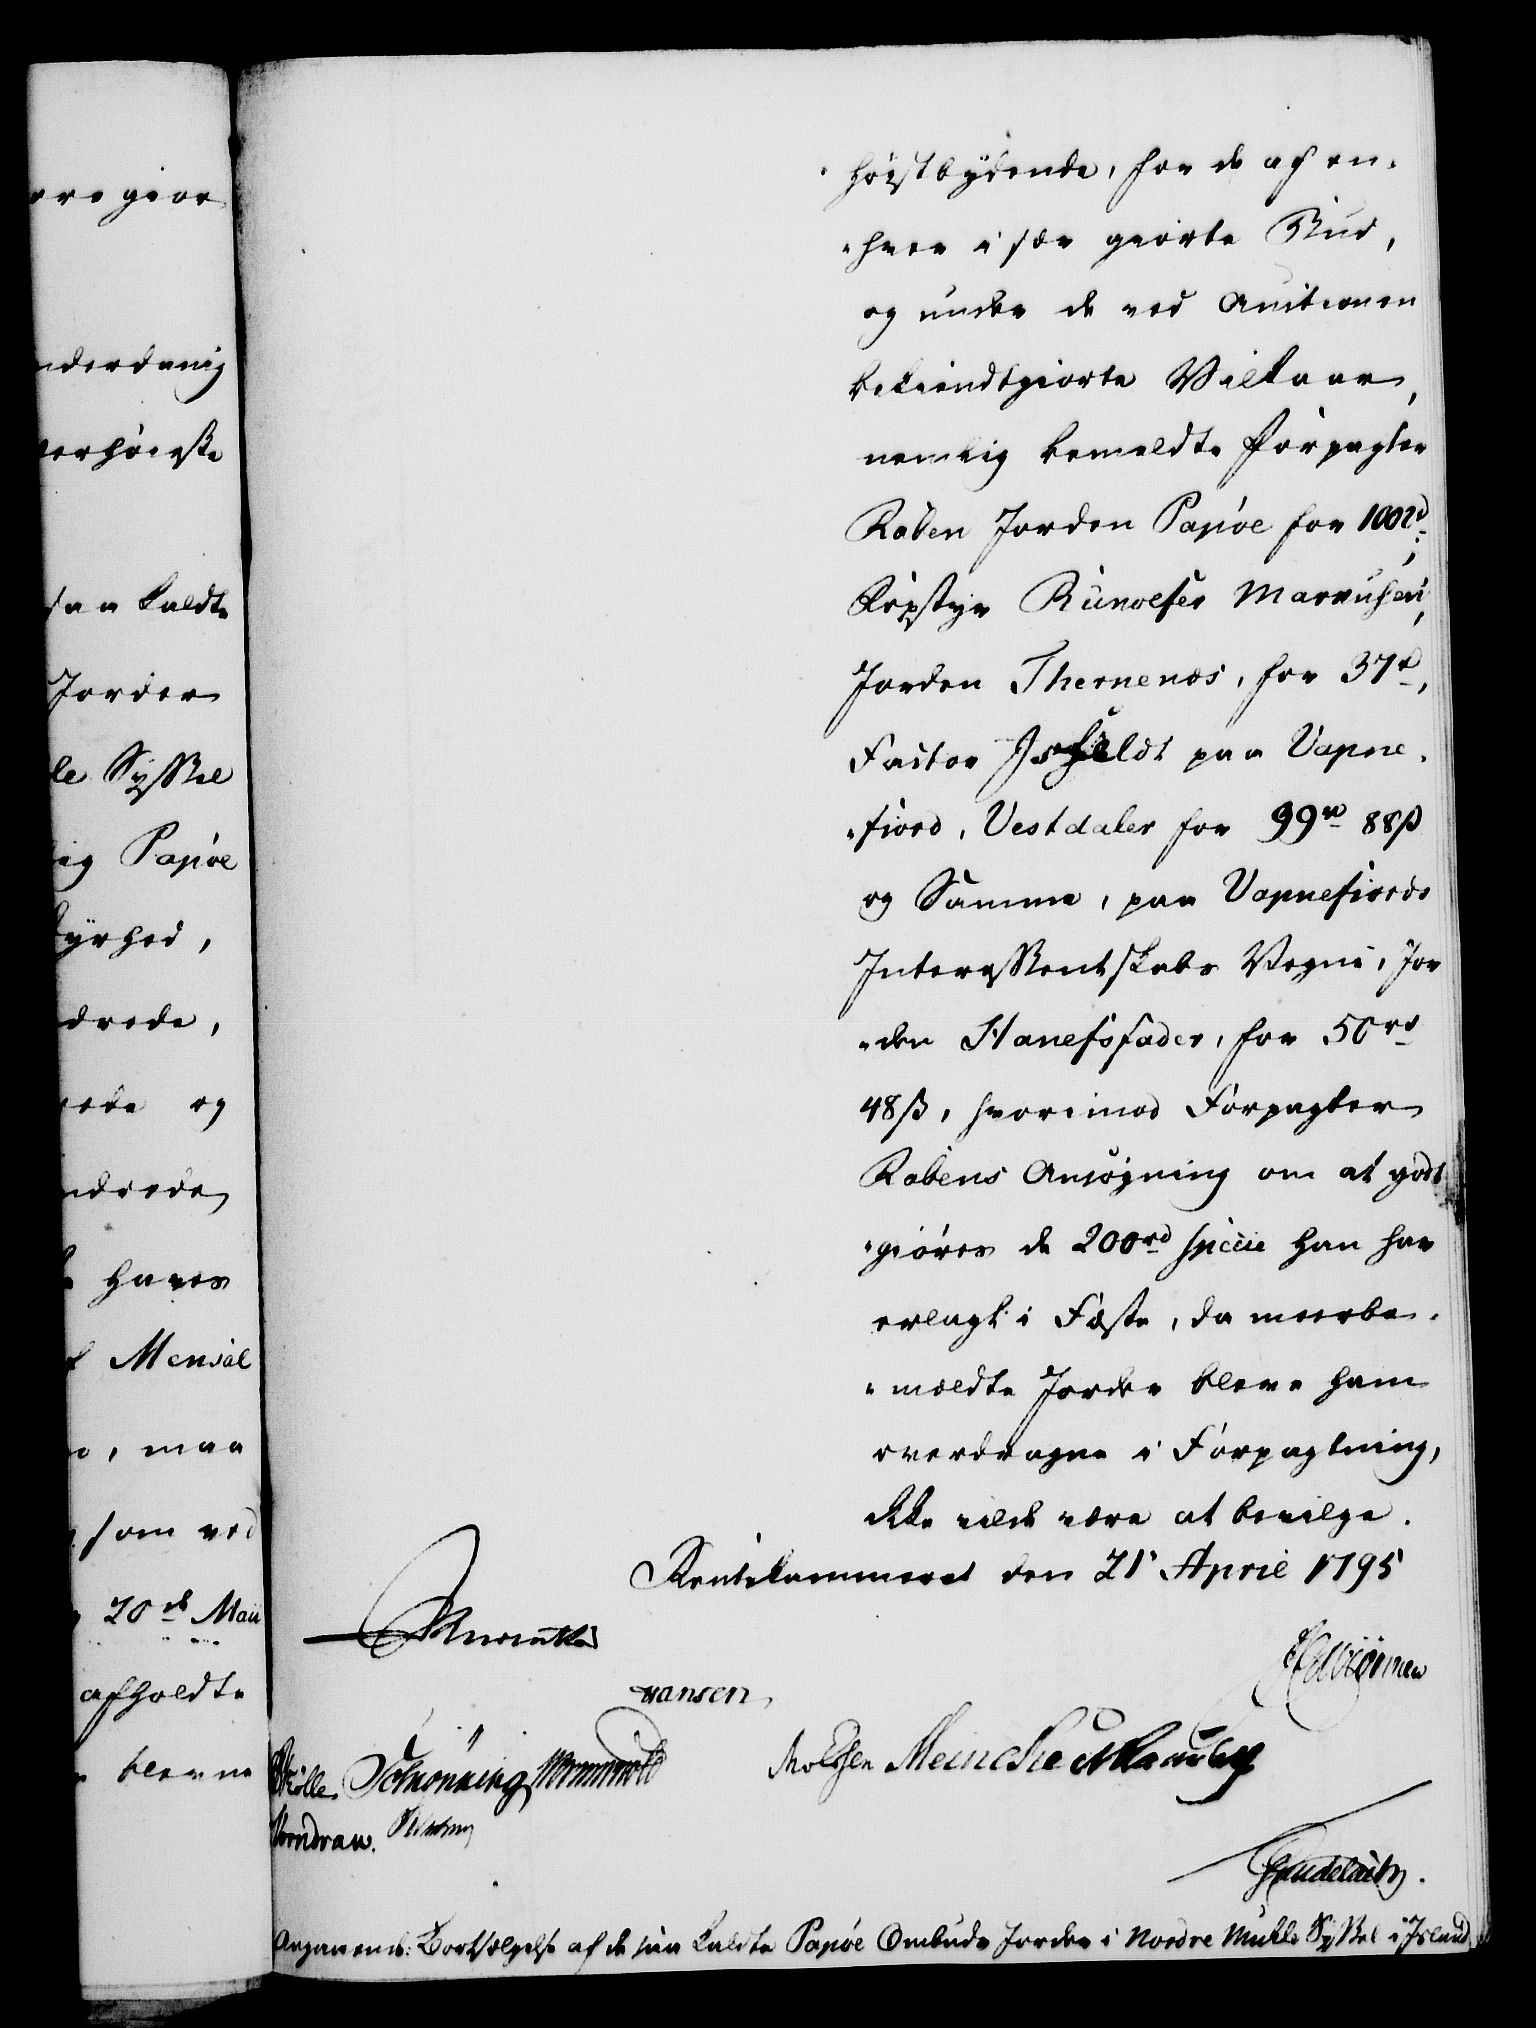 ere gior
nderdanig
erhöieste
saa kaldte
Jorder
le Syssel
ig Papöe
yrhed,
drede,
rede og
ndrede
haves
Mensal
, maa
som ved
20de Maii
afholdte
blevne
höistbydende, for de af en-
-hver i sær giorte Bud,
og under de ved Auctionen
bekiendtgiorte Vilkaar,
nemlig bemeldte Forpagter
Raben Jorden Papöe for 100rd,
Repstyr Runolfer Marcusen,
Jorden Thernenæs, for 37rd,
Factor Isfeldt paa Vapne-
-fiord, Vestdaler for 99rd 88ß
og Samme, paa Vapnefiords
Interessentskabs Vegne, Jor
-den Hanefsfader, for 50rd
48ß, hvorimod Forpagter
Rabens Ansögning om at godt
-giöres de 200rd Specie han har
erlagt i Fæste, da meerbe-
-meldte Jorder bleve ham
overdragne i Forpagtning,
ikke vilde være at bevilge.
Rentekammeret den 21 April 1795
Reventlow
Hansen,
Schönning Wormskiold
Meincke
Wendraw.
Argument: Bortsælgelse af de saa kaldte Papöe Ombuds Jorder i Nordre Muhle Syssel i Island